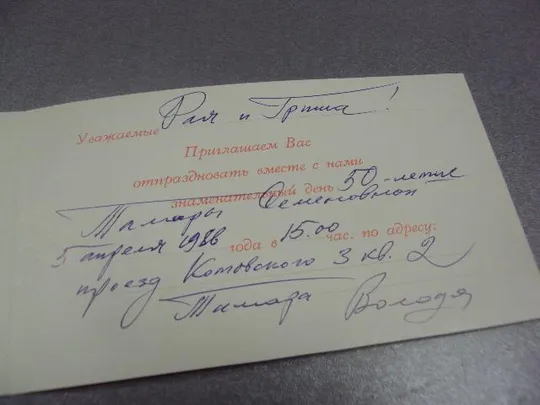 Уважаемые Рая и Гриша!
Приглашаем Вас
отпраздновать вместе с нами
знаменательный день 50-летие
Тамары Семеновной
5 апреля 1986 года в 15.00 час. по адресу:
проезд Котовского 3 кв. 2
Тамара Володя